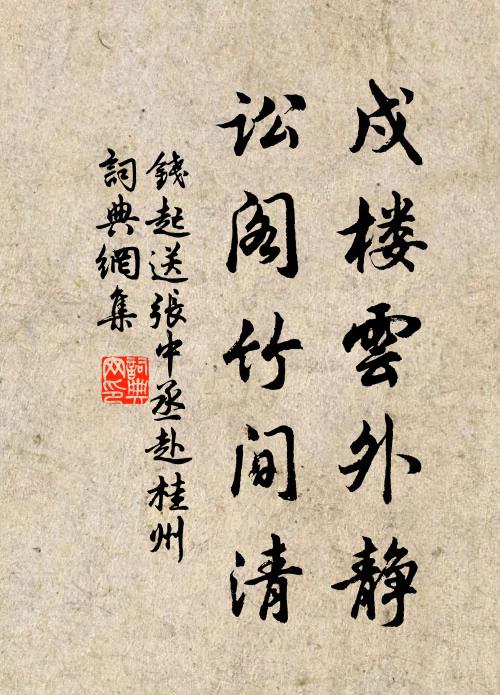 戍楼雲外静
訟阁竹间清
錢起送張中丞赴桂州
詞典網集
詞典
网印